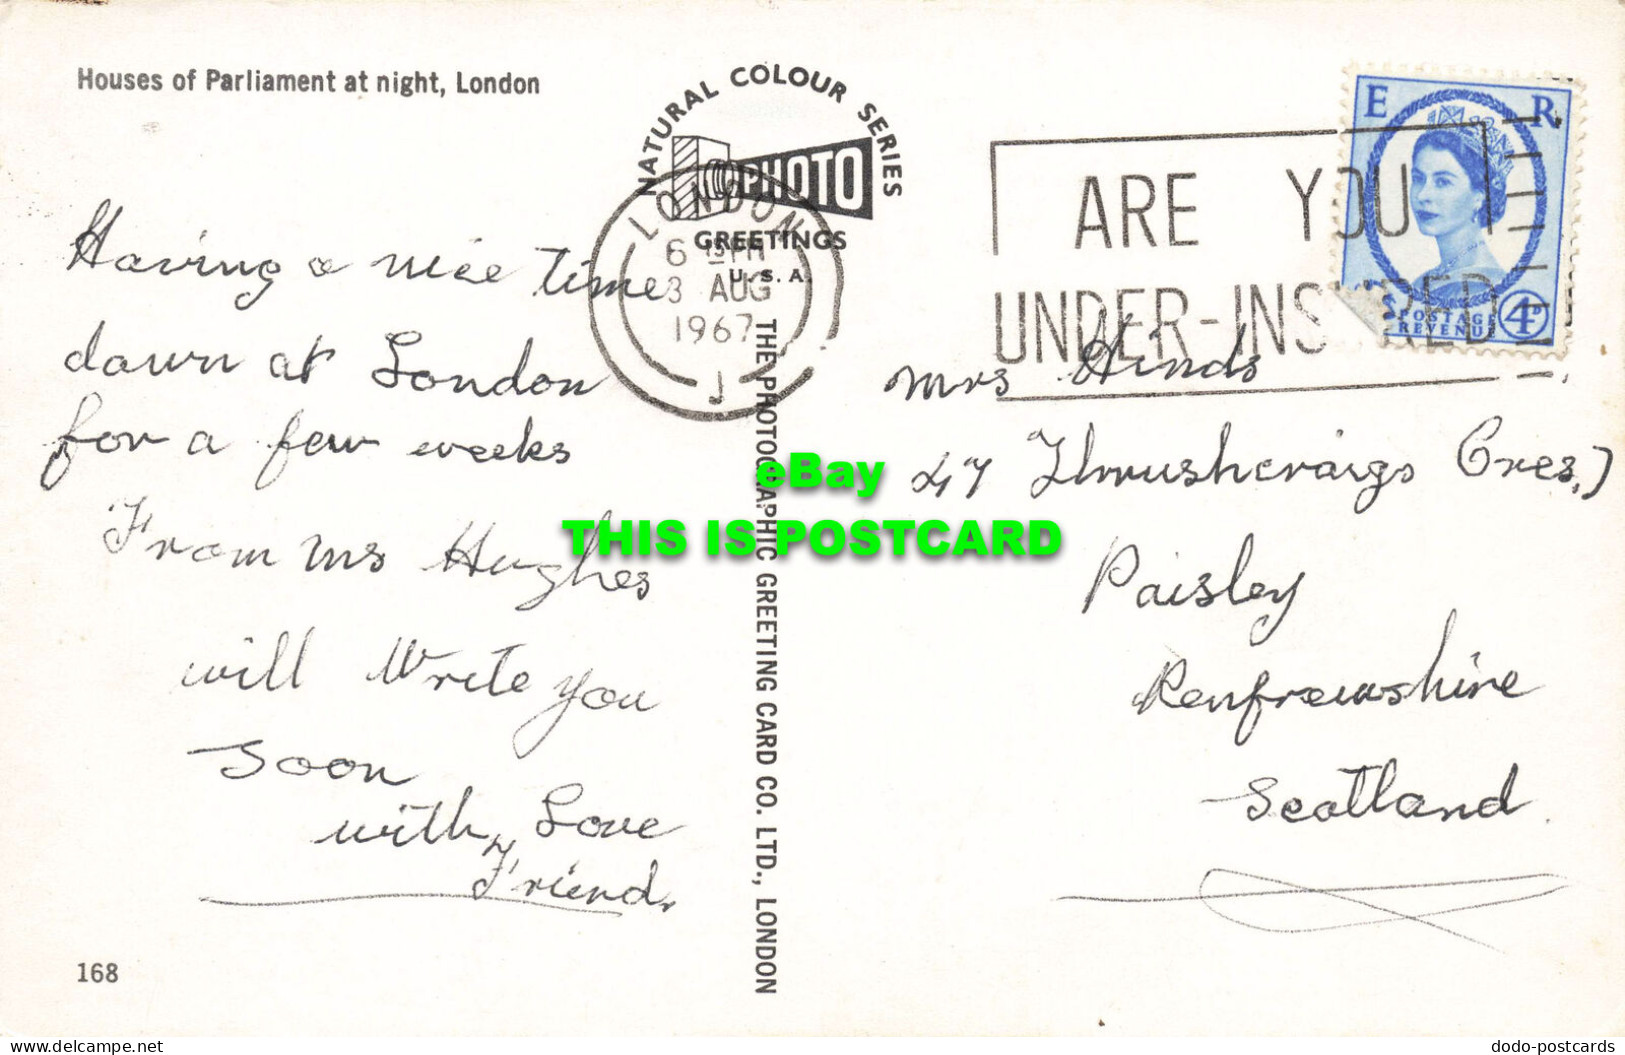 Houses of Parliament at night, London
NATURAL COLOUR SERIES
PHOTO
GREETINGS
U.S.A.
LONDON
6 15 PM
3 AUG
1967
J
ARE YOU
UNDER-INSURED
E R
POSTAGE
REVENUE
4D
Having a nice time
down at London
for a few weeks
From Mrs Hughes
will Write you
Soon
with Love
Friend.
Mrs Hinds
47 Thrushcraigs Cres,
Paisley
Renfrewshire
Scotland
THE PHOTOGRAPHIC GREETING CARD CO. LTD., LONDON
eBay
THIS IS POSTCARD
168
www.delcampe.net
dodo-postcards